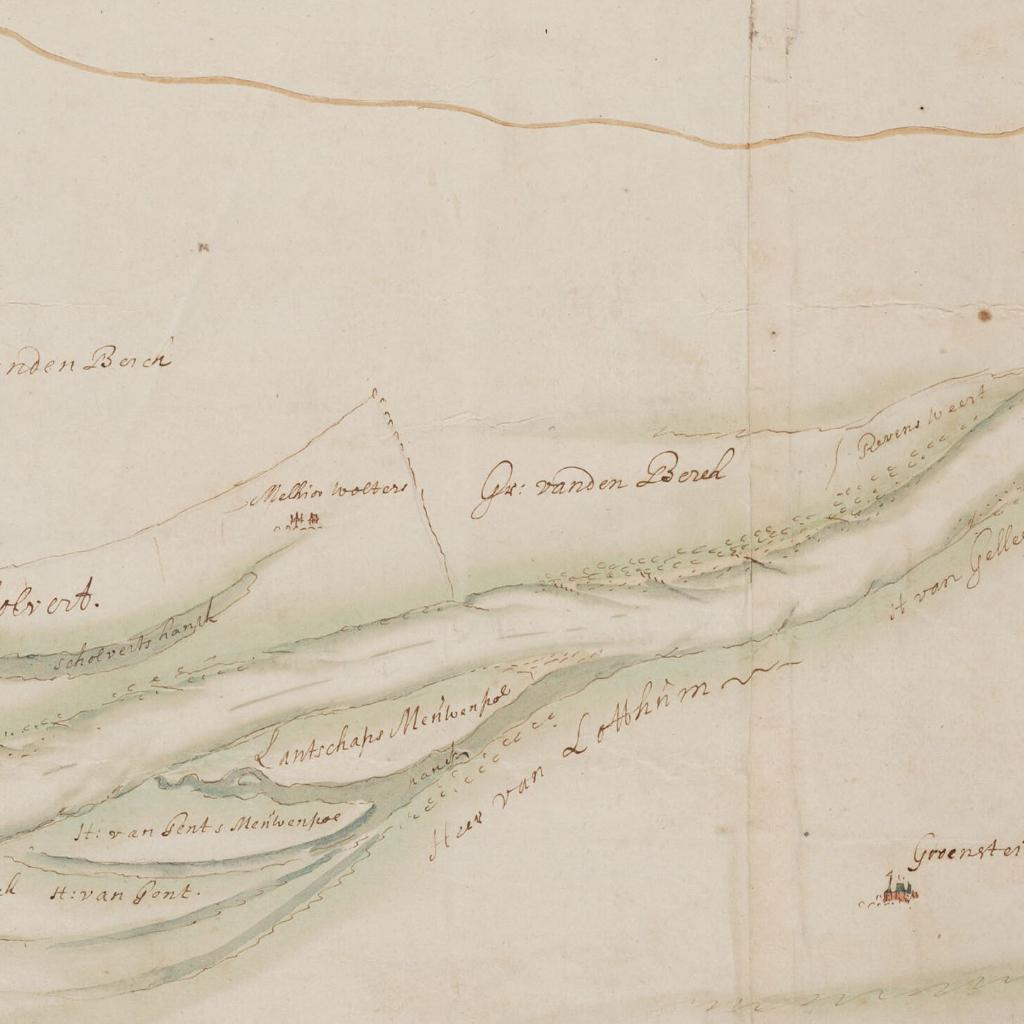 vanden Berch
Melhior wolters
Gr: vanden Berch
Revens weert
H van Gelle
olvert.
scholverts hanck
Lantschaps Meŭwenpoe
hanck
Heer van Lotthŭm
H: van Gents Meŭwenpoe
H: van Gent.
Groenstei